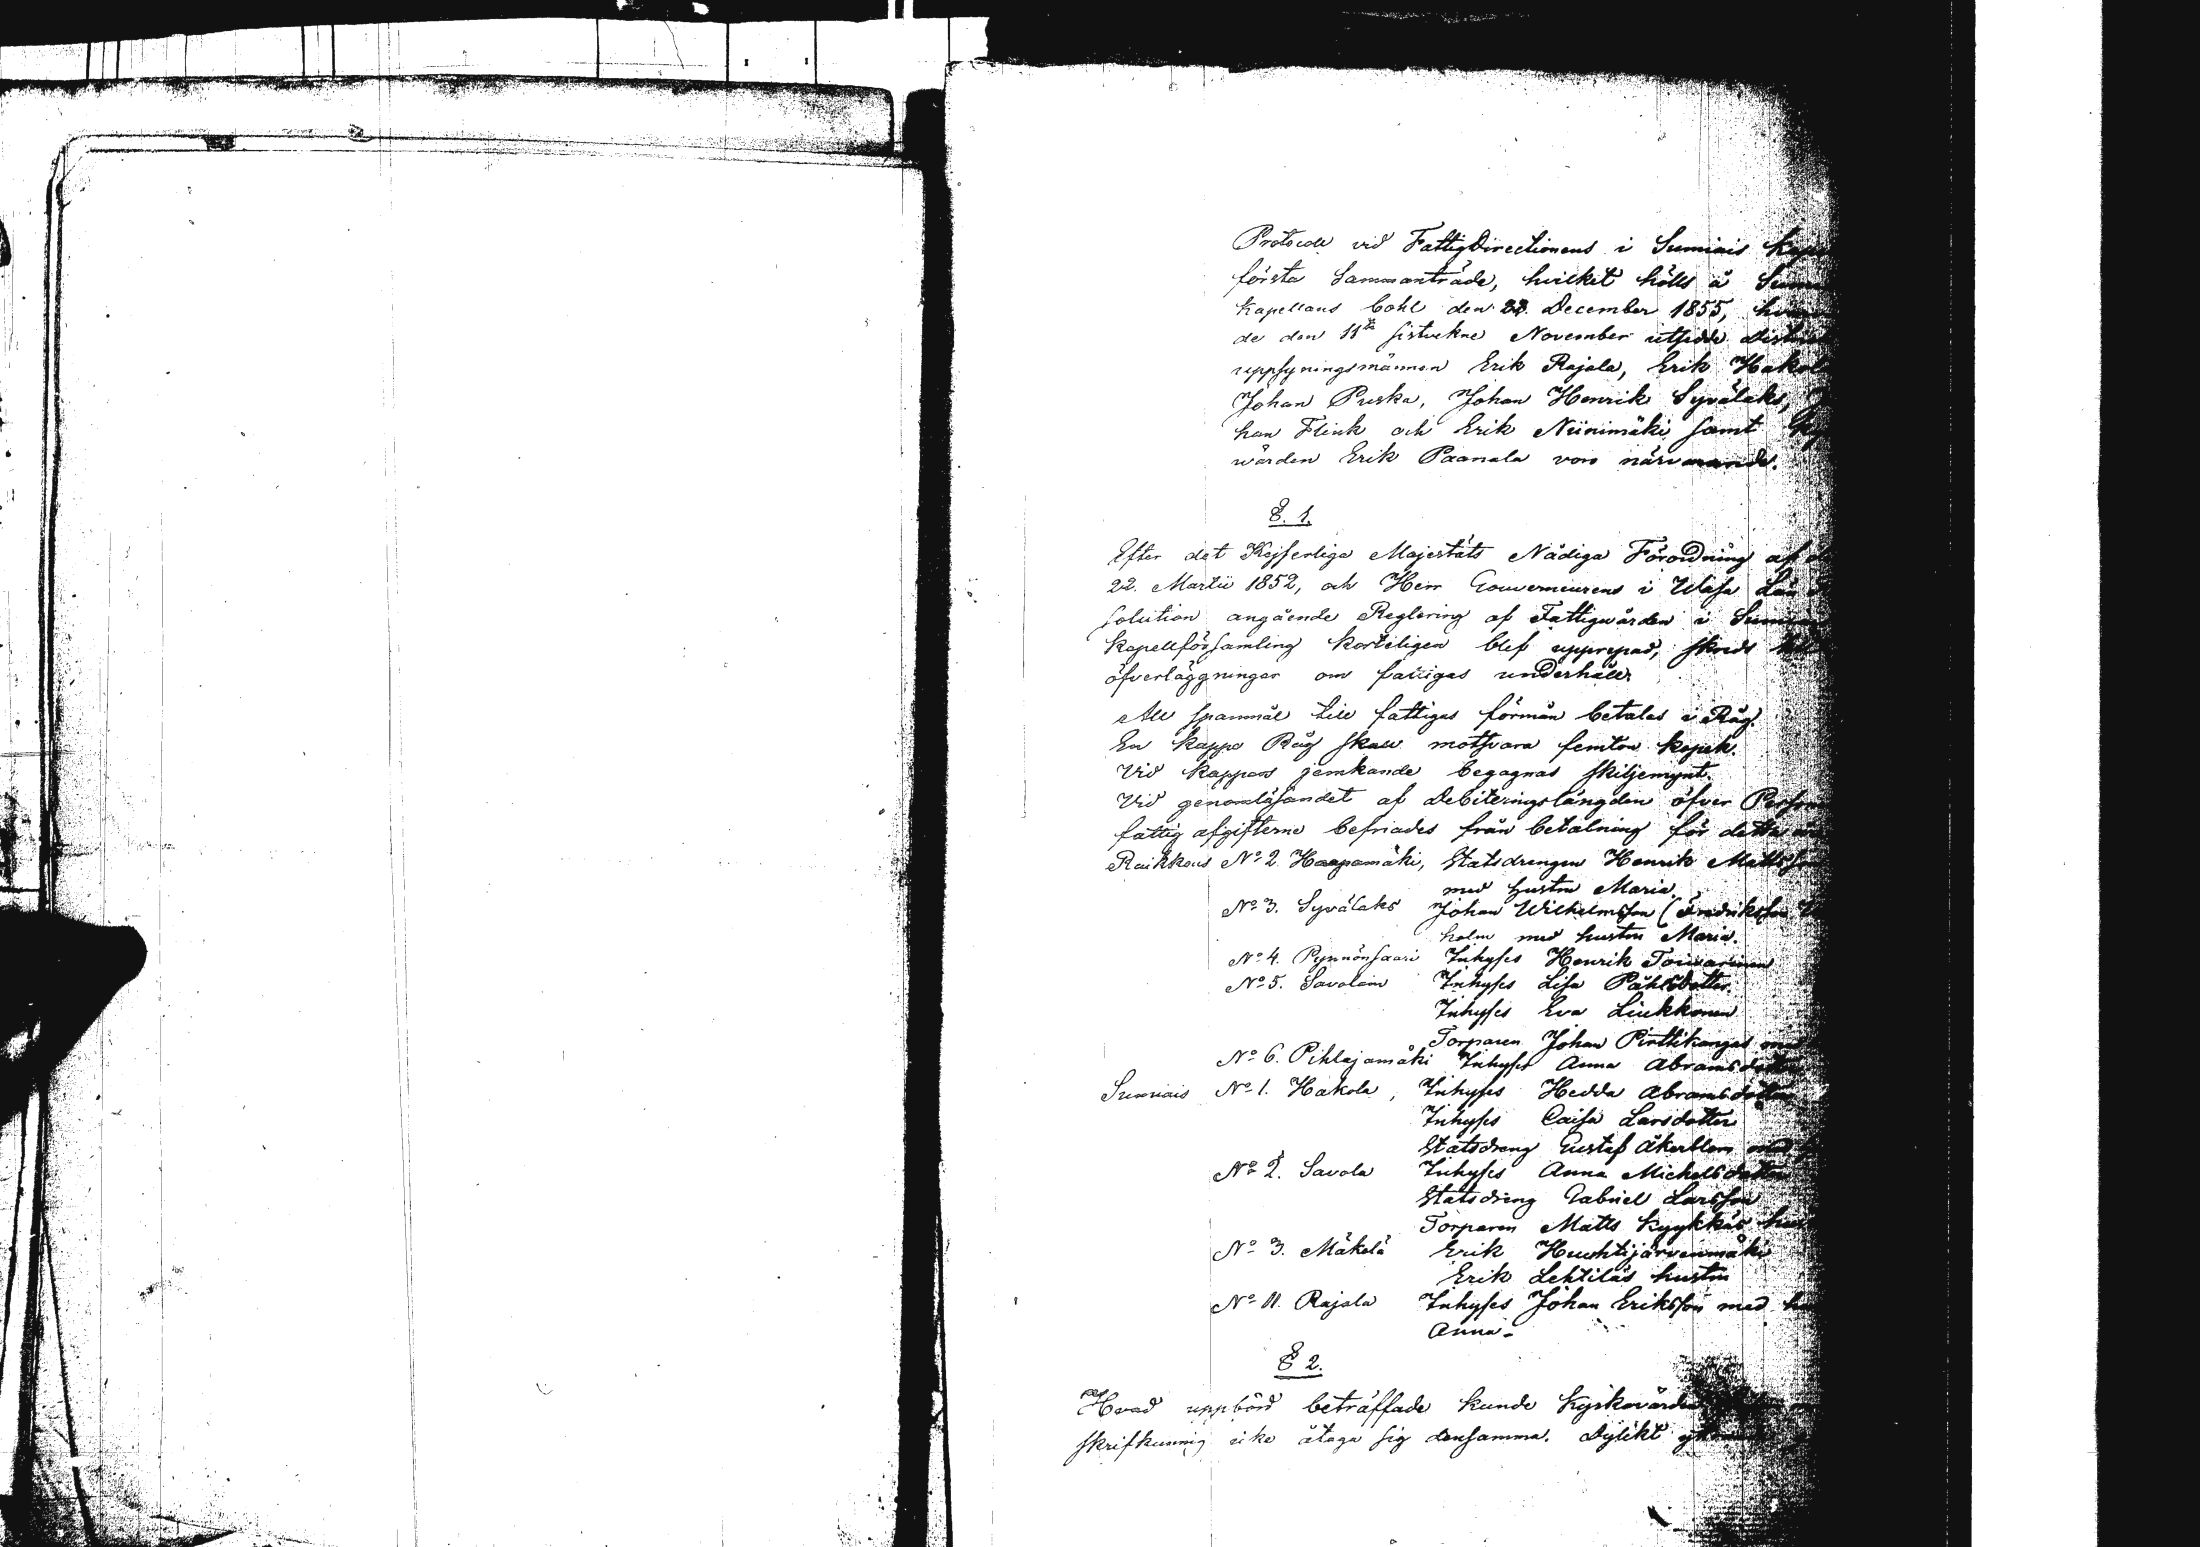 Protocoll vid Fattigdirectionens i Sumiais
första Sammanträde, hvilket hölls å
Kapellans bohl den 23. December 1855,
de den 11te sistvekne November utsedde
uppsyningsmännen Erik Rajala, Erik Hakol
Johan Puska, Johan Henrik Syvälaks,
han Flink och Erik Niinimäki samt
wärden Erik Paanala voro närvarande.
§. 1.
Efter det Kejserliga Majestäts Nådiga Förordning af
22. Martii 1852, och Herr Gouverneurens i Wasa Län
solution angående Reglering af Fattigvården i
Kapellförsamling korteligen blef upprepad, skreds
öfverläggningar om fattigas underhåll.
All spanmål till fattigas förmån betalas i Råg.
En kappe Råg skall motsvara femton kopek.
Vid kappans jemkande begagnas skiljemynt.
Vid genomläsandet af Debiteringslängden öfver
fattig afgifterne befriades från betalning för detta
Raikkaus No 2. Haapamäki, Statsdrengen Henrik Matts
med hustru Maria.
No 3. Syvälaks Johan Wilhelmsson (Fredriksson
holm med hustru Maria.
No 4. Pynnönsaari Inhyses Henrik
No 5. Savolain Inhyses Lisa Påhlsdotter.
Inhyses Eva Liukkonen
Torparen Johan Pirttikangas
No 6. Pihlajamäki Inhyses Anna Abramsdotter
Sumiais No 1. Hakola, Inhyses Hedda Abramsdotter
Inhyses Caisa Larsdotter
Statsdreng Gustaf Åkerblom med
No 2. Savola Inhyses Anna Michelsdotter
Statsdreng Gabriel Larsson
Torparen Matts Kyykkäs
No 3. Mäkelä Erik Huuhtijärvenmäki
Erik Lehtiläs hustru
No 11. Rajala Inhyses Johan Eriksson med
Anna.
§ 2.
Hvad uppbörd beträffade kunde Kyrkovärden
skrifkunnig icke åtaga sig densamma. Dylikt